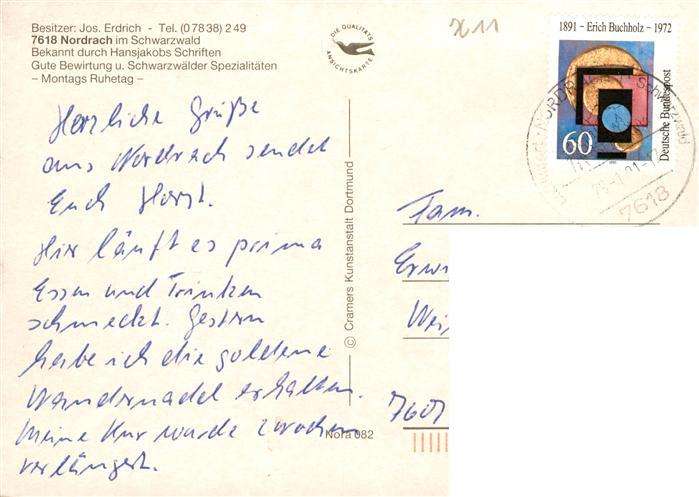 Besitzer: Jos. Erdrich - Tel. (0 78 38) 2 49
7618 Nordrach im Schwarzwald
Bekannt durch Hansjakobs Schriften
Gute Bewirtung u. Schwarzwälder Spezialitäten
– Montags Ruhetag –
Herzliche Grüße
aus Nordrach sendet
Euch Horst.
Hier läuft es prima
Essen und Trinken
schmeckt. Gestern
habe ich die goldene
Wandernadel erhalten.
Meine Kur wurde 2 Wochen
verlängert.
Nora 082
© Cramers Kunstanstalt Dortmund
DIE QUALITÄTS
ANSICHTSKARTE
7611
1891 – Erich Buchholz – 1972
60
Deutsche Bundespost
7618
Fam.
Erwi
Wei
7601